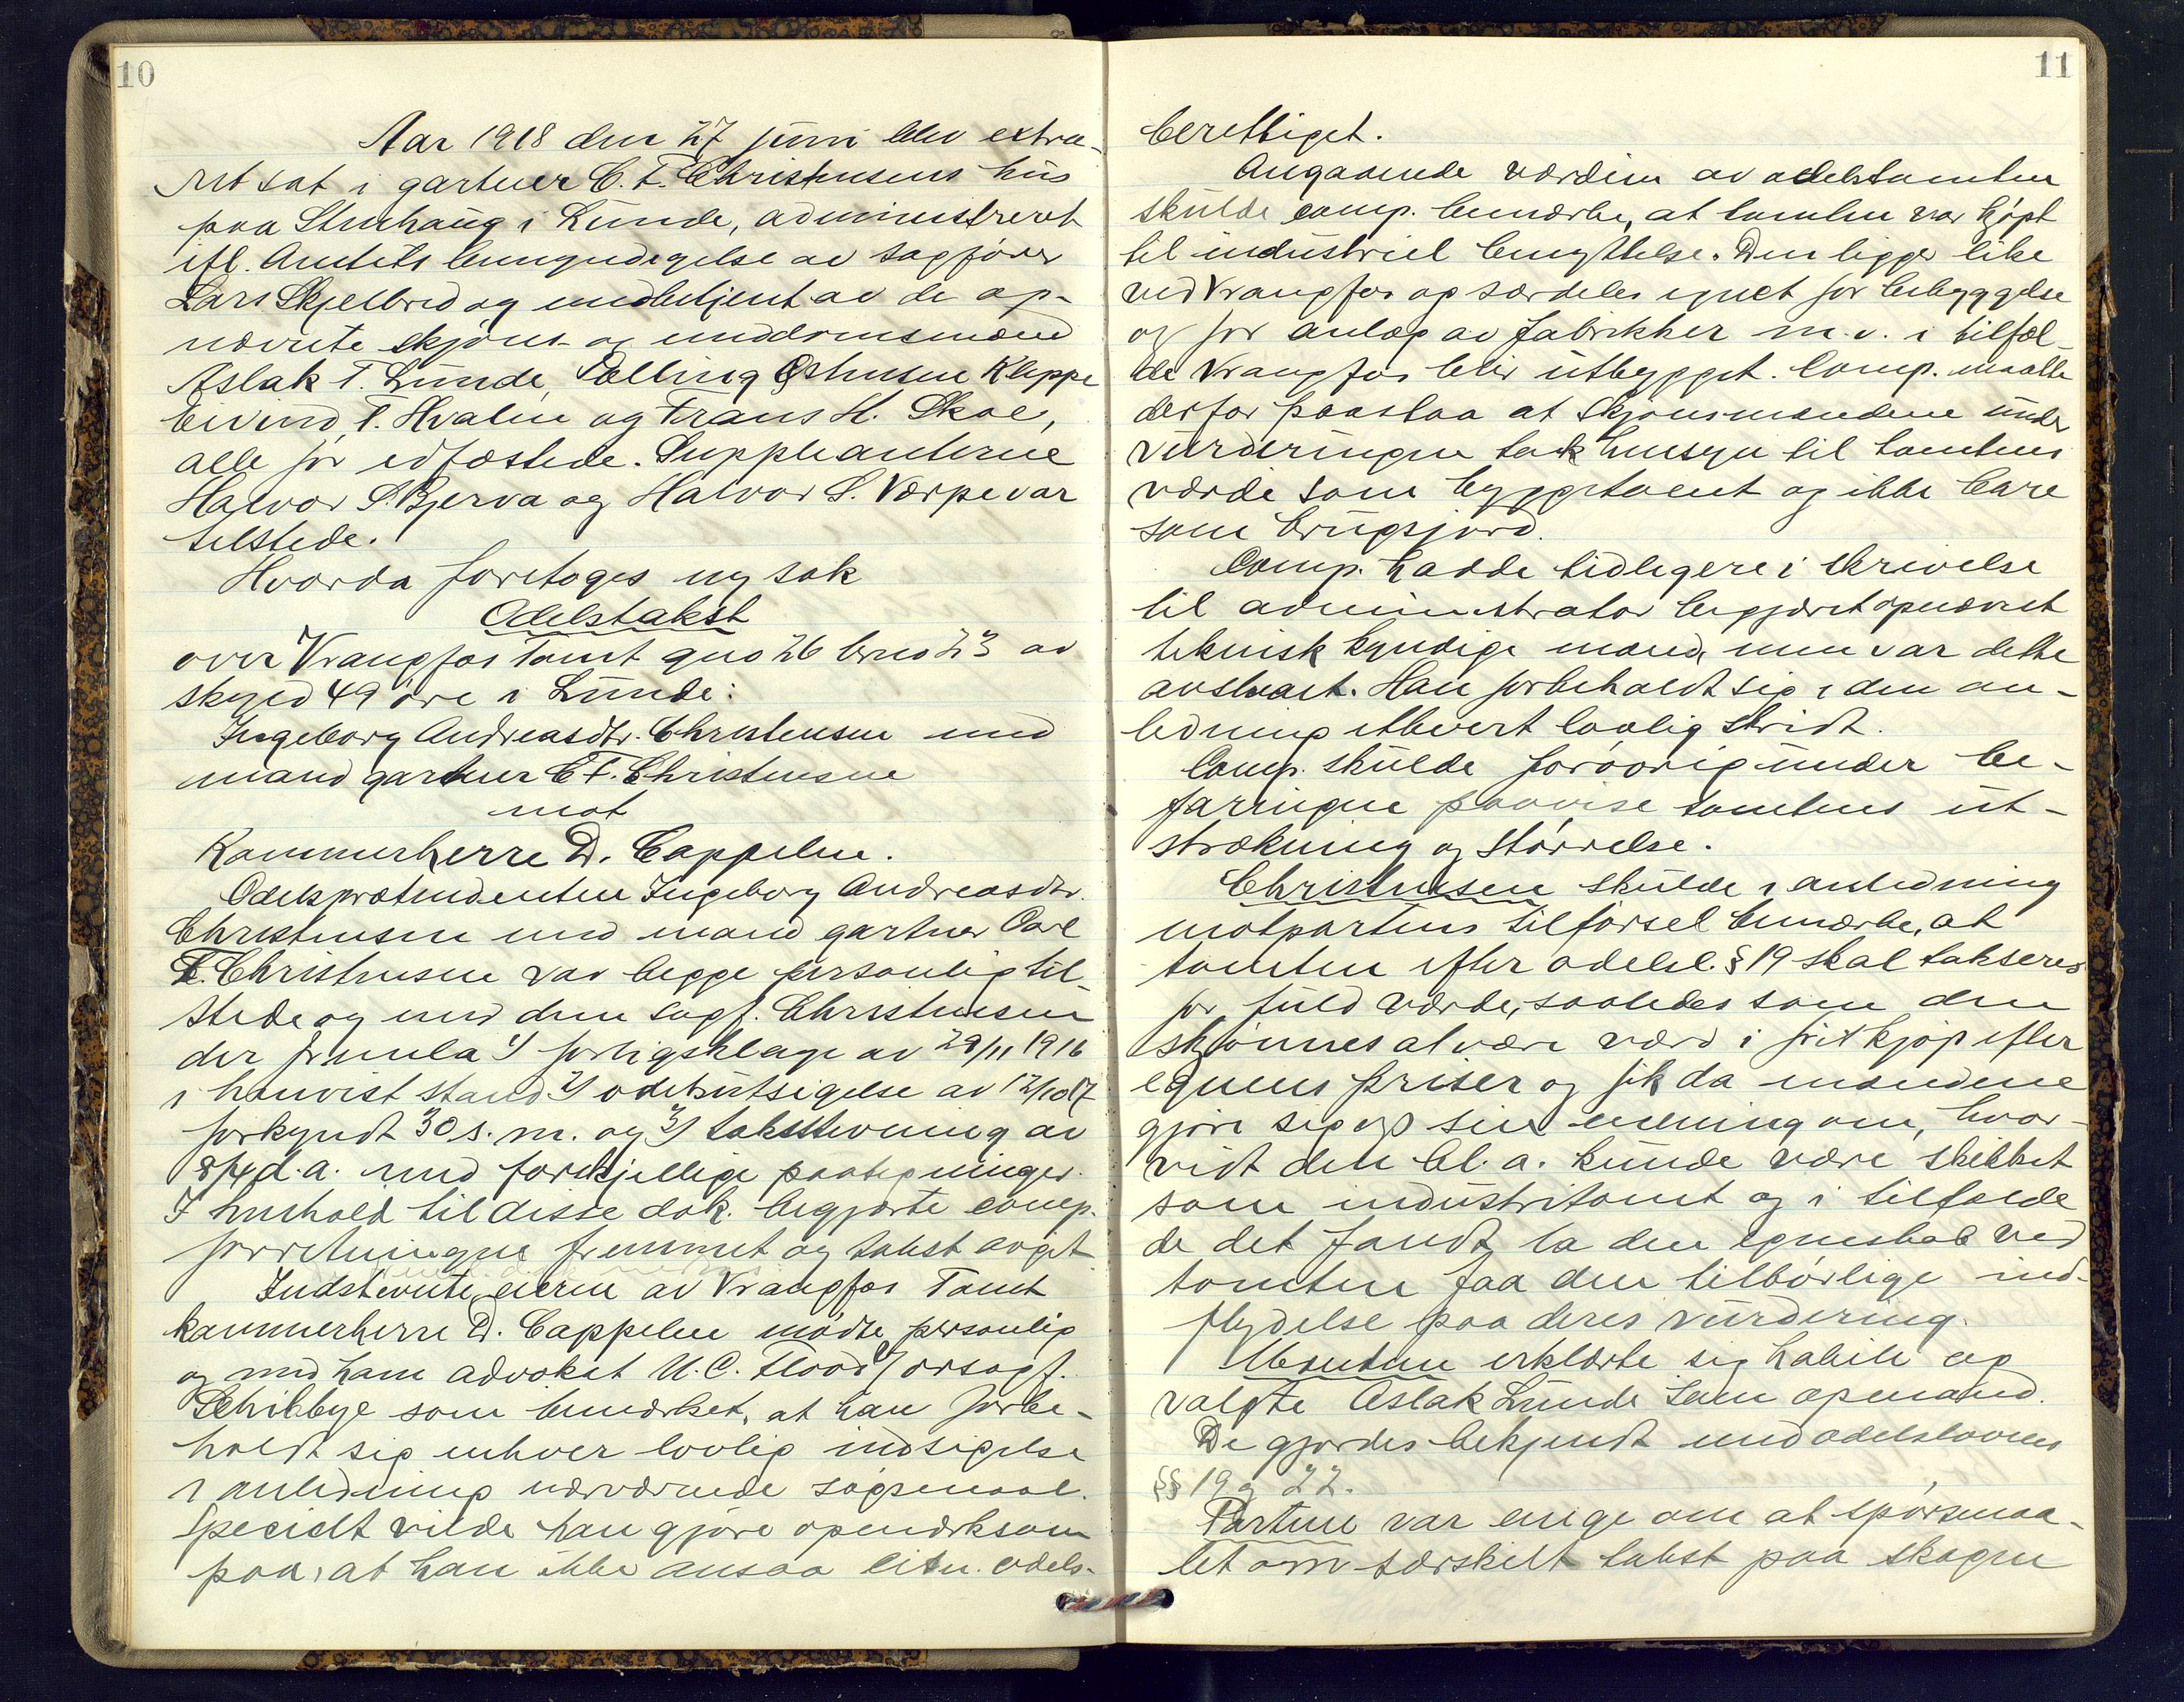 10
Aar 1918 den 27 juni blev extra-
ret sat i gartner C. F. Christensens hus
paa Stenhaug i Lunde, administreret
ifl. Amtets bemyndigelse av sagfører
Lars Skjelbred og medbetjent av de op-
nævnte skjøns- og meddomsmænd
Aslak T. Lunde, Pælling Østensen Kleppe
Eivind T. Hvalen og Frans H. Skoe,
alle før edfæstede. Suppleanterne
Halvor S. Bjerva og Halvor S. Værpe var
tilstede.
Hvorda foretoges ny sak
Odelstakst
over Vrangfos Tomt gno 26 brno 23 av
skyld 49 øre i Lunde:
Ingeborg Andreasdtr. Christensen med
mand gartner C F. Christensen
mot
Kammerherre D. Cappelen.
Odelsprætendenten Ingeborg Andreasdtr.
Christensen med mand gartner Carl
F. Christensen var begge personlig til-
stede og med dem sagf. Christensen
der fremla 1/ forligsklage av 29/11 1916
i henvist stand 2/ odelsutsigelse av 12/10 17
forkyndt 30 s. m. og 3/ takststevning av
8/4 d. a. med forskjellige paategninger.
I henhold til disse dok. begjærte comp.
forretningen fremmet og takst avgit
Indstevnte, eieren av Vrangfos Tomt
kammerherre D. Cappelen mødte personlig
og med ham advokat U. C. Flood v/ orsagf.
Schibbye som bemærket, at han forbe-
holdt sig enhver lovlig indsigelse
i anledning nærværende søgsmaal.
Specielt vilde han gjøre opmerksom
paa, at han ikke ansaa citn. odels-
11
berettiget.
Angaaende værdien av odelstomten
skulde comp. bemærke, at tomten var kjøpt
til industriel benyttelse. Den ligger like
ved Vrangfos og særdeles egnet for bebyggelse
og for anlæg av fabrikker m. v. i tilfæl-
de Vrangfos blir utbygget. Comp. maatte
derfor paastaa at skjønsmændene under
vurderingen tok hensyn til tomtens
værde som byggetomt og ikke bare
som brugsjord.
Comp. hadde tidligere i skrivelse
til administrator begjæret opnævnt
teknisk kyndige mænd, men var dette
avslaaet. Han forbeholdt sig i den an-
ledning ethvert lovlig skridt.
Comp. skulde forøvrig under be-
faringen paavise tomtens ut-
strækning og størrelse.
Christensen skulde i anledning
motpartens tilførsel bemærke, at
tomten efter odelsl. § 19 skal takseres
for fuld værde, saaledes som den
skjønnes at være værd i frit kjøp efter
egnens priser og fik da mændene
gjøre sig op sin mening om, hvor-
vidt den bl. a. kunde være skikket
som industritomt og i tilfælde
de det fandt, la den egenskab ved
tomten faa den tilbørlige ind-
flydelse paa deres vurdering.
Mændene erklærte sig habile og
valgte Aslak Lunde som opmand.
De gjordes bekjendt med odelslovens
§§ 19 og 22.
Partene var enige om at spørsmaa-
let om særskilt takst paa skogen